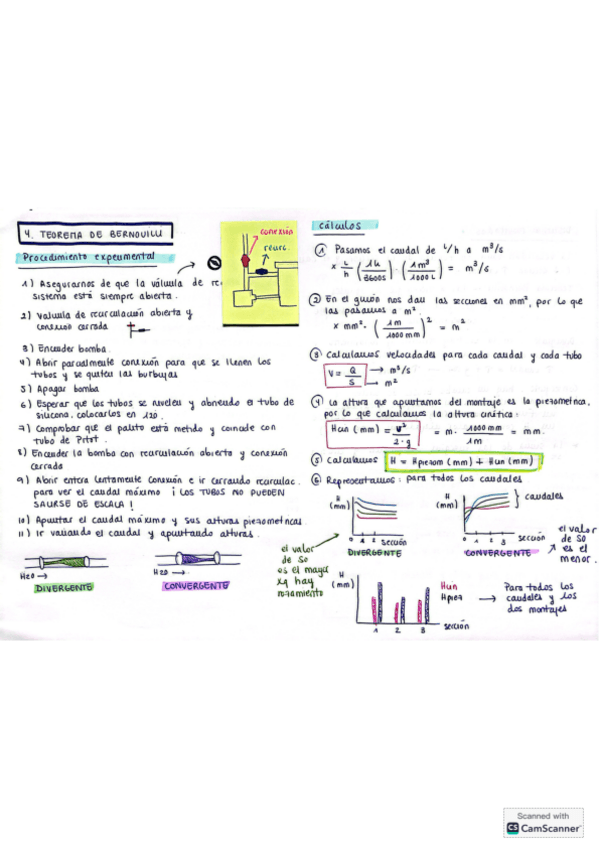 4. TEOREMA DE BERNOUILLI
Procedimiento experimental
1) Asegurarnos de que la válvula de rec
sistema está siempre abierta.
2) Valvula de recirculación abierta y
conexión cerrada
3) Encender bomba.
4) Abrir parcialmente conexión para que se llenen los
tubos y se quiten las burbujas
5) Apagar bomba
6) Esperar que los tubos se nivelen y abriendo el tubo de
silicona. colocarlos en 120.
7) Comprobar que el palito está metido y coincide con
tubo de Pitot.
8) Encender la bomba con recirculación abierta y conexión
cerrada
9) Abrir entera lentamente conexión e ir cerrando recirculac.
para ver el caudal máximo ¡ LOS TUBOS NO PUEDEN
SALIRSE DE ESCALA !
10) Apuntar el caudal máximo y sus alturas piezometricas.
11) Ir variando el caudal y apuntando alturas.
H2O →
DIVERGENTE
H2O →
CONVERGENTE
conexión
recirc.
cálculos
1 Pasamos el caudal de L/h a m³/s
x L/h (1h/3600s) · (1m³/1000L) = m³/s
2 En el guión nos dan las secciones en mm², por lo que
las pasamos a m².
x mm² · (1m/1000mm)² = m²
3 Calculamos velocidades para cada caudal y cada tubo
V = Q/S → m³/s → m²
4 La altura que apuntamos del montaje es la piezometrica,
por lo que calculamos la altura cinética:
Hcin (mm) = v²/2·g = m · 1000mm/1m = mm.
5 Calculamos H = Hpiezom (mm) + Hcin (mm)
6 Representamos: para todos los caudales
H
(mm)
0 1 2 sección
DIVERGENTE
H
(mm)
0 1 2 3 sección
caudales
CONVERGENTE
el valor
de S0
es el
menor.
el valor
de S0
es el mayor
xq hay
rozamiento
H
(mm)
Hcin
Hpiez
1 2 3 sección
Para todos los
caudales y los
dos montajes
Scanned with
CS CamScanner